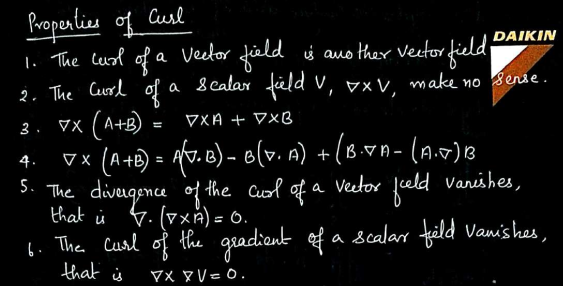 Properties of Curl
DAIKIN
1. The curl of a Vector field is another vector field
2. The Curl of a scalar field V, ∇×V, make no sense.
3. ∇× (A+B) = ∇×A + ∇×B
4. ∇× (A+B) = A(∇.B) - B(∇.A) + (B.∇A - (A.∇)B
5. The divergence of the curl of a vector field vanishes,
that is ∇.(∇×A) = 0.
6. The curl of the gradient of a scalar field vanishes,
that is ∇× ∇V = 0.